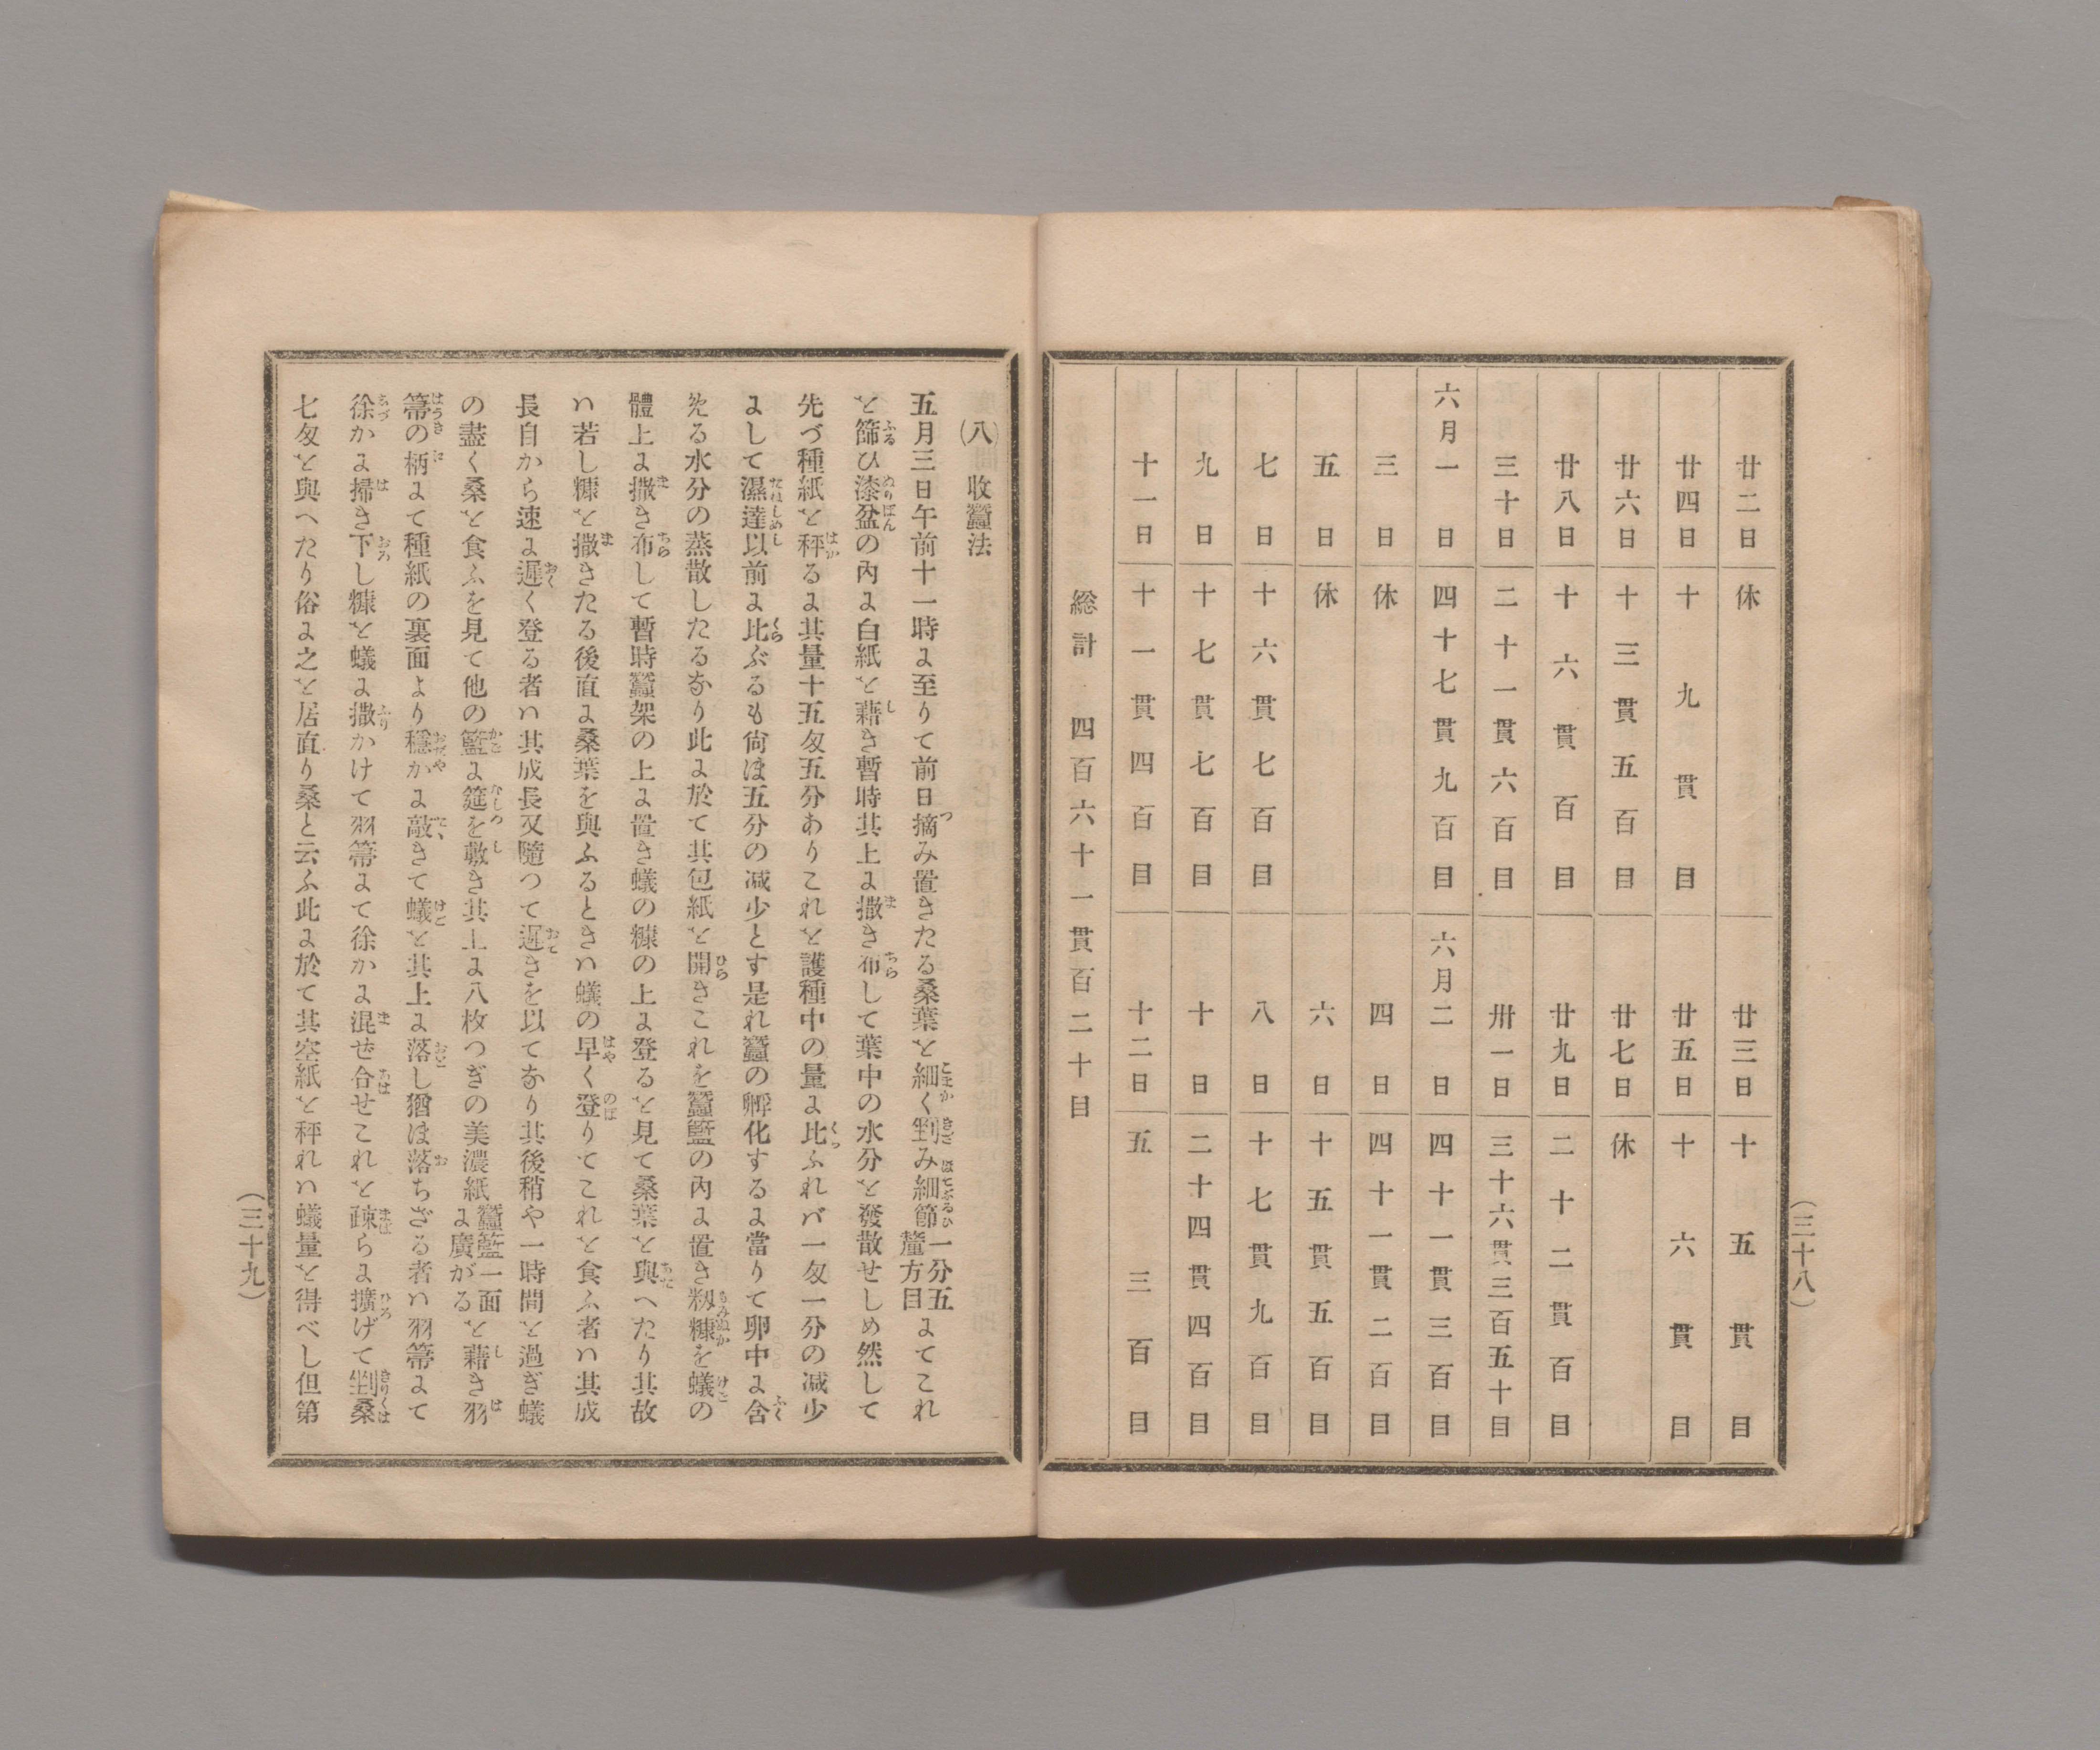 廿二日 休 廿三日 十五貫目
廿四日 十九貫目 廿五日 十六貫目
廿六日 十三貫五百目 廿七日 休
廿八日 十六貫百目 廿九日 二十二貫百目
三十日 二十一貫六百目 卅一日 三十六貫三百五十目
六月一日 四十七貫九百目 六月二日 四十一貫三百目
三日 休 四日 四十一貫二百目
五日 休 六日 十五貫五百目
七日 十六貫七百目 八日 十七貫九百目
九日 十七貫七百目 十日 二十四貫四百目
十一日 十一貫四百目 十二日 五三百目
総計 四百六十一貫百二十目
(三十八)
(八) 收蠶法
五月三日午前十一時に至りて前日摘み置きたる桑葉を細く剉み細篩一分五釐方目にてこれ
を篩ひ漆盆の內に白紙を藉き暫時其上に撒き布して葉中の水分を發散せしめ然して
先づ種紙を秤るに其量十五匁五分ありこれを護種中の量に比ふれバ一匁一分の减少
にして濕達以前に比ぶるも尙ほ五分の减少とす是れ蠶の孵化するに當りて卵中に含
める水分の蒸散したるなり此に於て其包紙を開きこれを蠶籃の內に置き籾糠を蟻の
體上に撒き布して暫時蠶架の上に置き蟻の糠の上に登るを見て桑葉を與へたり其故
ハ若し糠を撒きたる後直に桑葉を與ふるときハ蟻の早く登りてこれを食ふ者ハ其成
長自から速に遲く登る者ハ其成長又隨つて遲きを以てなり其後稍や一時間を過ぎ蟻
の盡く桑を食ふを見て他の籃に筵を敷き其上に八枚つぎの美濃紙蠶籃一面に廣がるを藉き羽
箒の柄にて種紙の裏面より穩かに敲きて蟻を其上に落し猶ほ落ちざる者ハ羽箒にて
徐かに掃き下し糠を蟻に撒かけて羽箒にて徐かに混ぜ合せこれを疎らに擴げて剉桑
七匁を與へたり俗に之を居直り桑と云ふ此に於て其空紙を秤れハ蟻量を得べし但第
(三十九)